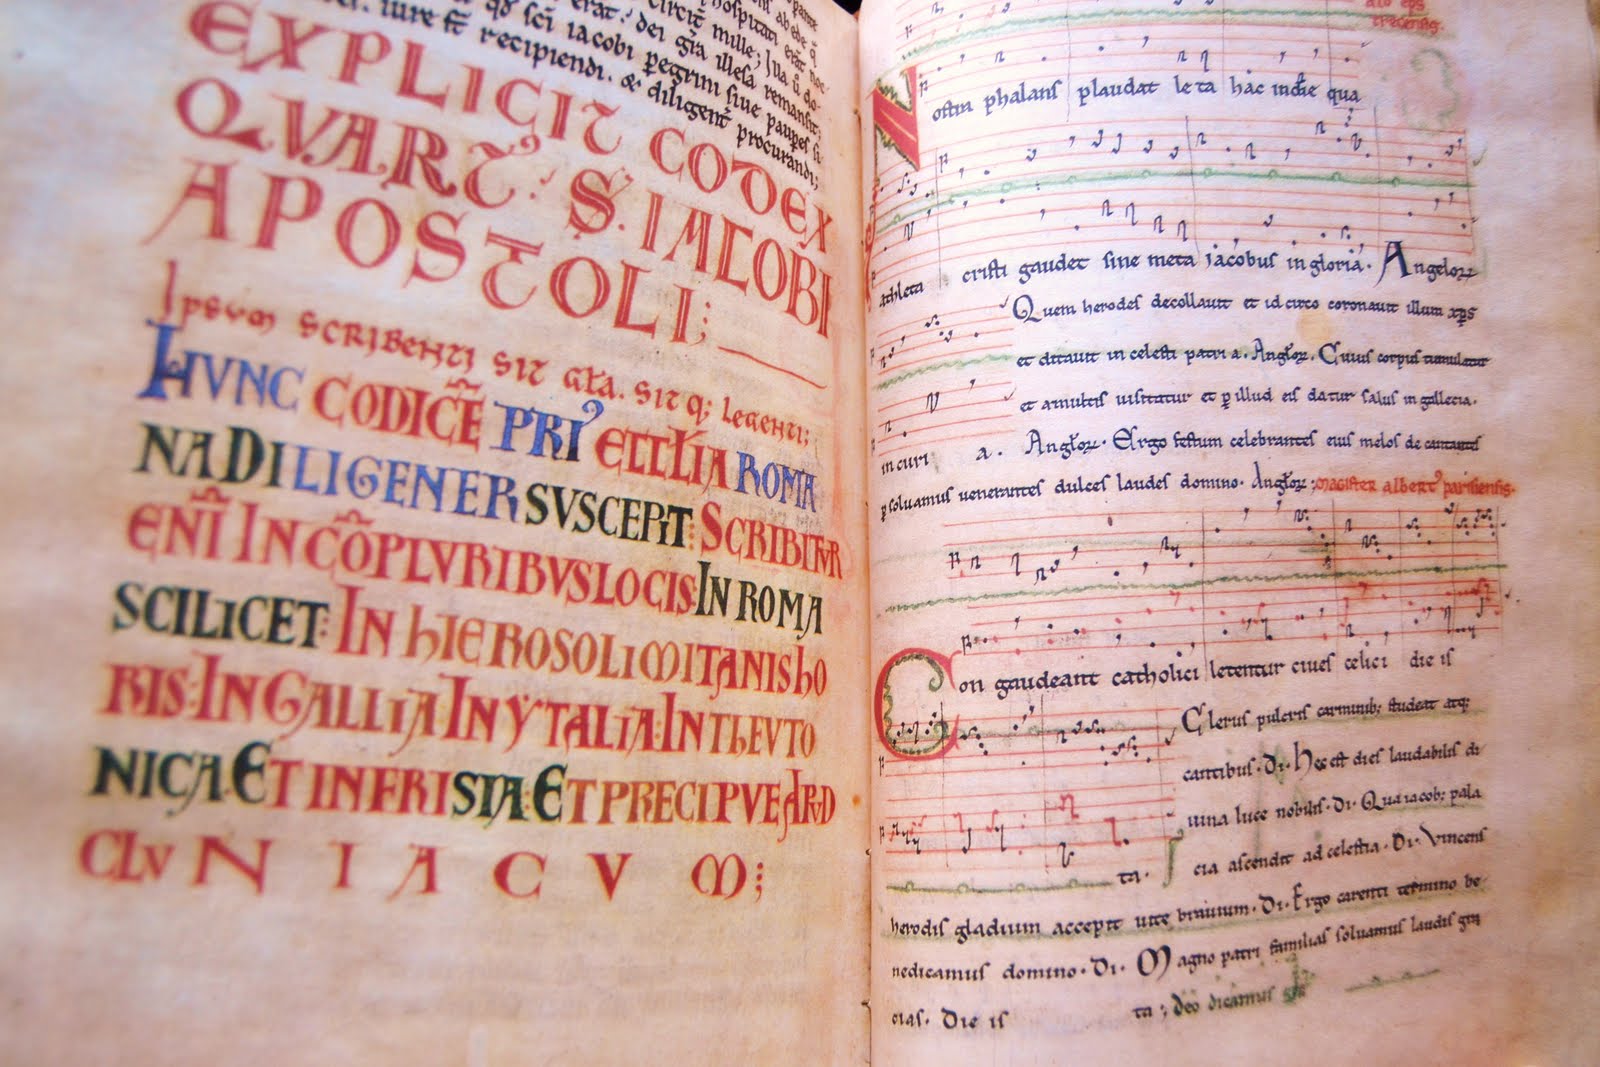 hospitati erat
circit mille; Ina ů do
erat; dei gr̃a illesa remansit;
qđ sc̃i iacobi ꝑegrini siue paupes si
iure st̃ recipiendi. & diligenť procurandi;
EXPLICIT CODEX
QVART9 . S. IACOBI
APOSTOLI;
Ipsum scribenti sit gl̃a. sit q; legenti;
HVNC CODICẼ PRI9 ECCL̃IA ROMA
NA DILIGENER SVSCEPIT: SCRIBITVR
ENĨ IN CÕPLVRIBVS LOCIS: IN ROMA
SCILICET: IN HIEROSOLIMITANIS HO
RIS: IN GALLIA IN YTALIA: IN THEVTO
NICA: ET IN FRISIA: ET PRECIPVE APUD
CLVNIACVM;
Nostra phalans plaudat leta hac in die qua
athleta cristi gaudet sine meta jacobus in gloria. Angeloꝝ
Quem herodes decollauit et id circo coronauit illum xp̃s
et ditauit in celesti patria. Angl̃oꝝ. Cuius corpus tumulatur
et a multis uisitatur et ꝑ illud eis datur salus in gallecia.
in curi a. Angl̃oꝝ. Ergo festum celebrantes eius melos decantantes
ꝑsoluamus uenerantes dulces laudes domino. Angl̃oꝝ; magister albert9 parisiensis.
Congaudeant catholici letentur ciues celici die is
ta. Clerus pulcris carminib; studeat atq;
cantibus. Di. Hec est dies laudabilis di
uina luce nobilis. Di. Qua iacob; pala
cia ascendit ad celestia. Di. Vincens
herodis gladium accepit uite brauium. Di. Ergo carenti termino be
nedicamus domino. Di. Magno patri familias soluamus laudis gra
cias. Die is ta; Deo dicamus